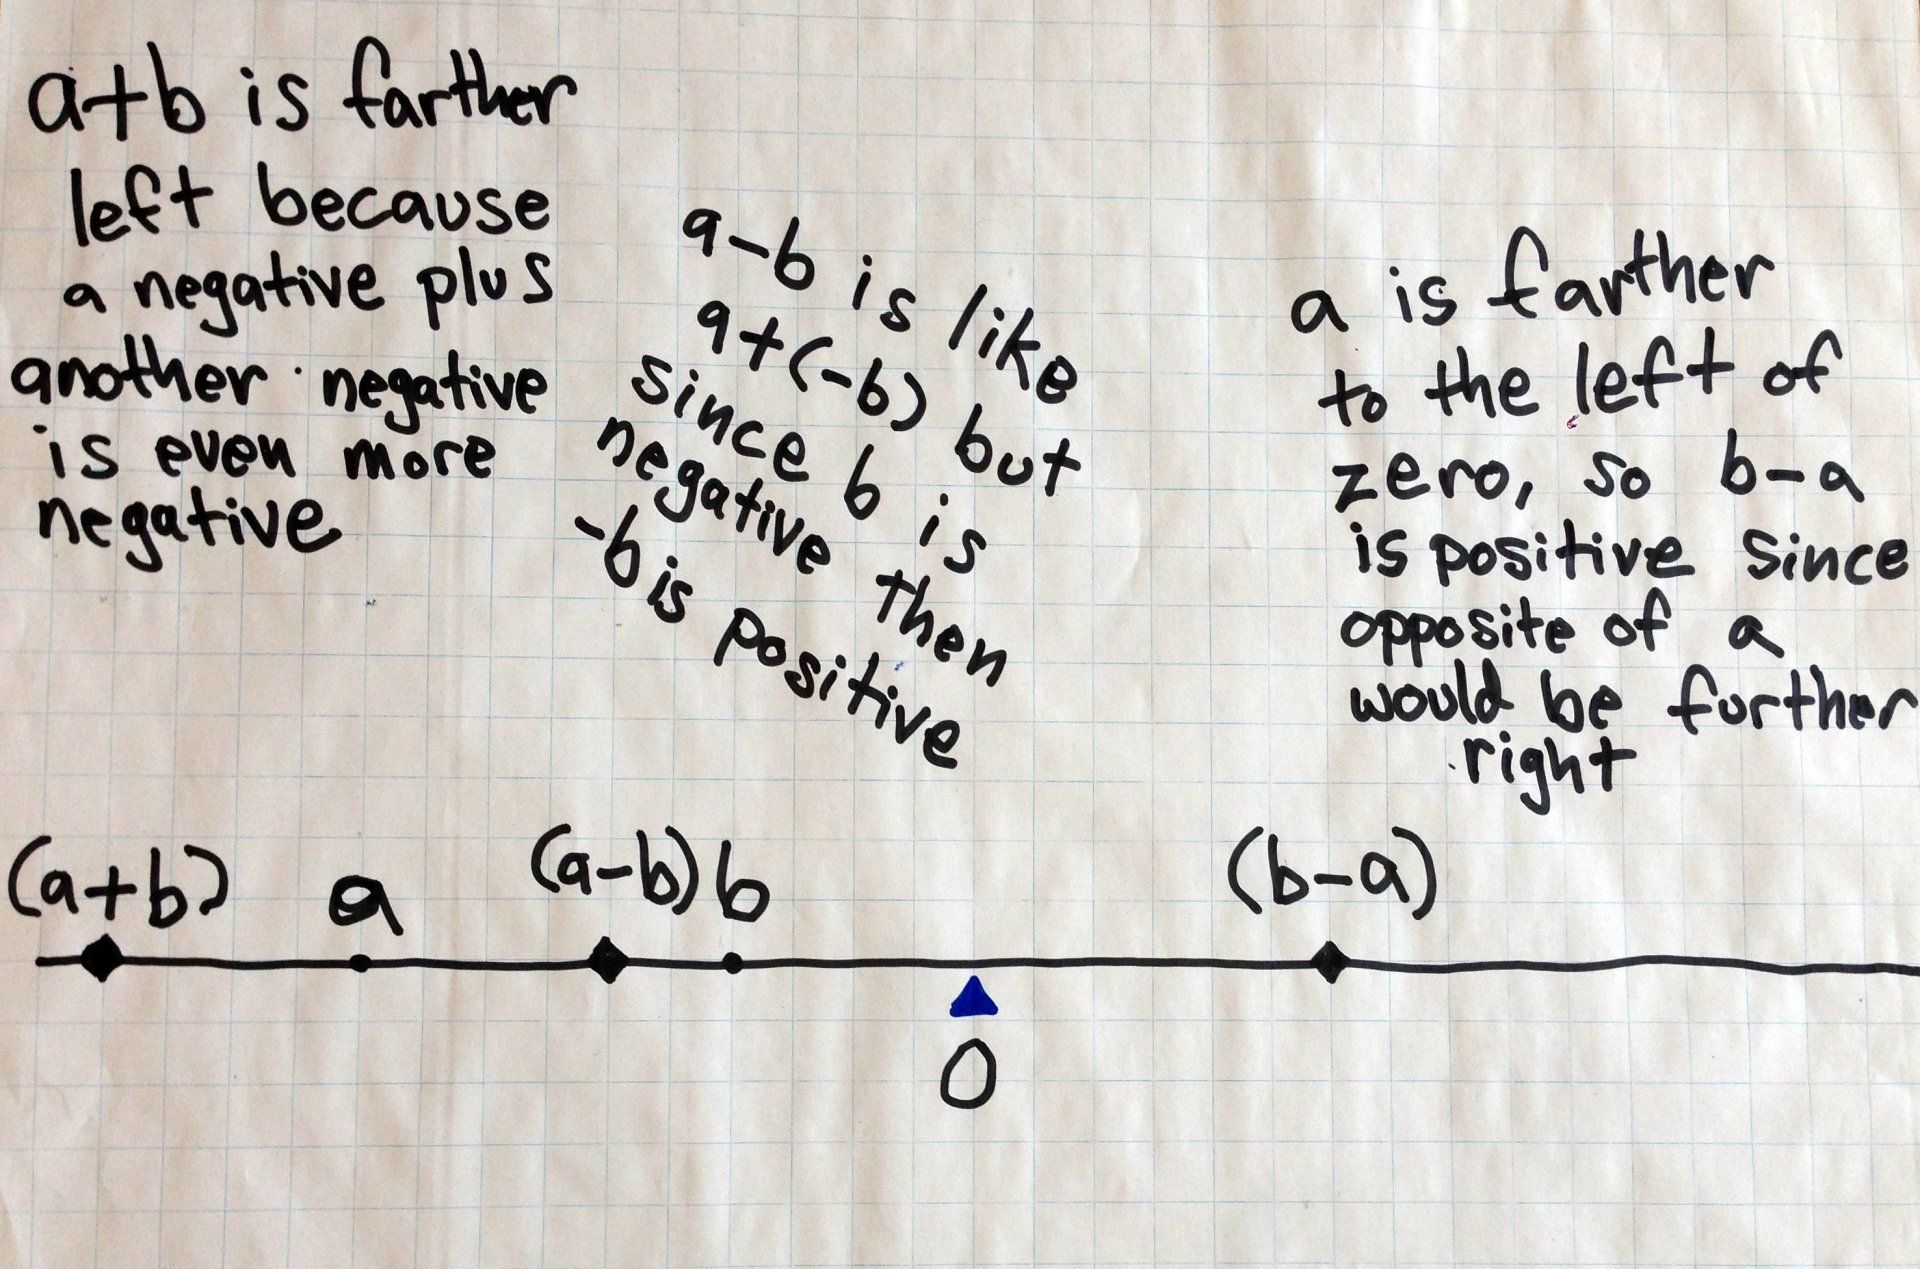 a+b is farther
left because
a negative plus
another negative
is even more
negative
a-b is like
a+(-b) but
since b is
negative then
-b is positive
a is farther
to the left of
zero, so b-a
is positive since
opposite of a
would be further
right
(a+b) a (a-b) b (b-a)
0